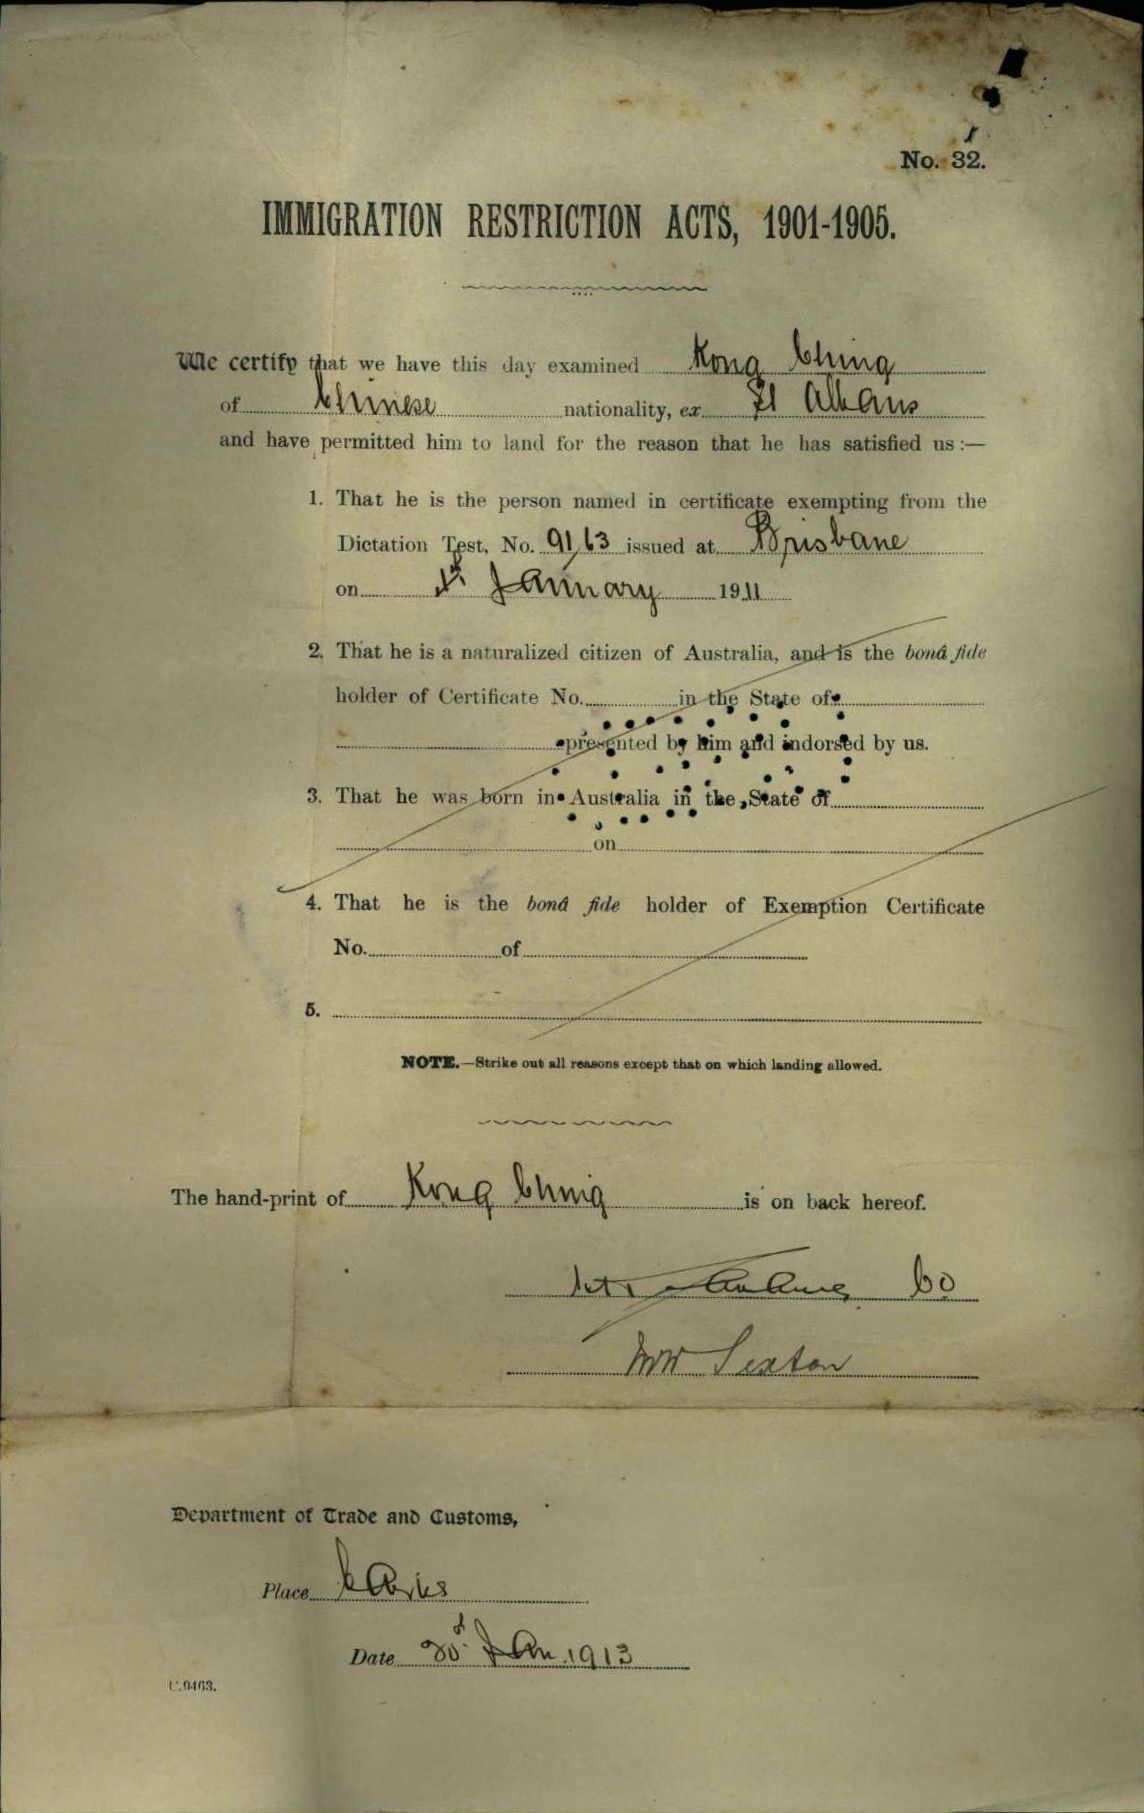 No. 32.
IMMIGRATION RESTRICTION ACTS, 1901-1905.
We certify that we have this day examined Kong Ching
of Chinese nationality, ex St Albans
and have permitted him to land for the reason that he has satisfied us :—
1. That he is the person named in certificate exempting from the
Dictation Test, No. 91/63 issued at Brisbane
on January 1911
2. That he is a naturalized citizen of Australia, and is the bonâ fide
holder of Certificate No. in the State of
presented by him and indorsed by us.
3. That he was born in Australia in the State of
on
4. That he is the bonâ fide holder of Exemption Certificate
No. of
5.
NOTE.—Strike out all reasons except that on which landing allowed.
The hand-print of Kong Ching is on back hereof.
CO
Sexton
Department of Trade and Customs,
Place Cairns
Date Jan. 1913
C.0463.